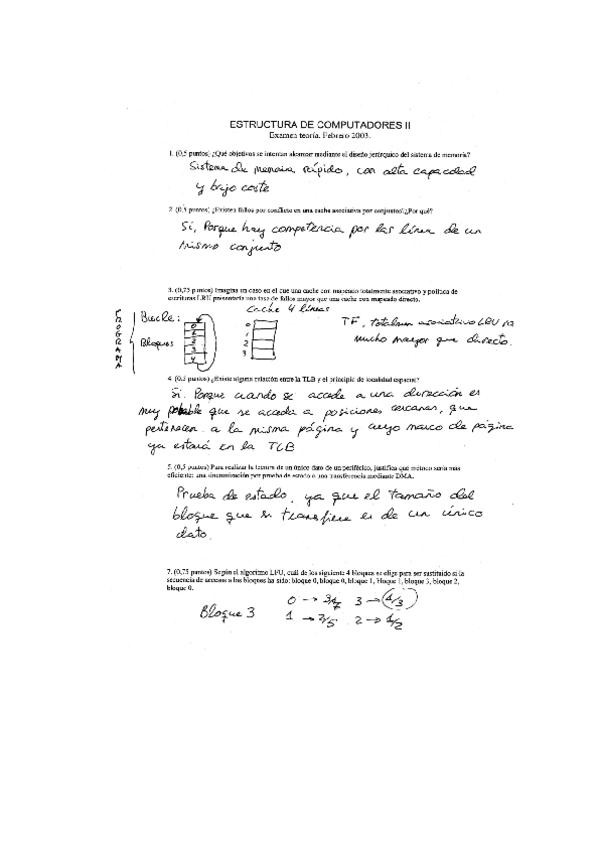 ESTRUCTURA DE COMPUTADORES II
Examen teoría. Febrero 2003.
1. (0,5 puntos) ¿Qué objetivos se intentan alcanzar mediante el diseño jerárquico del sistema de memoria?
Sistema de memoria rápido, con alta capacidad
y bajo coste
2. (0,5 puntos) ¿Existen fallos por conflicto en una cache asociativa por conjuntos? ¿Por qué?
Sí, Porque hay competencia por las línea de un
mismo conjunto
3. (0,75 puntos) Imagina un caso en el que una cache con mapeado totalmente asociativo y política de
escrituras LRU presentaría una tasa de fallos mayor que una cache con mapeado directo.
PROGRAMA
Bucle:
Bloques
0
1
2
3
4
cache 4 líneas
0
1
2
3
TF, totalmen asociativo LRU
mucho mayor que directo.
4. (0,5 puntos) ¿Existe alguna relación entre la TLB y el principio de localidad espacial?
Si. Porque cuando se accede a una dirección es
muy probable que se acceda a posiciones cercanas, que
pertenecen a la misma página y cuyo marco de página
ya estará en la TLB
5. (0,5 puntos) Para realizar la lectura de un único dato de un periférico, justifica qué método sería más
eficiente: una sincronización por prueba de estado o una transferencia mediante DMA.
Prueba de estado, ya que el tamaño del
bloque que se transfiere es de un único
dato.
7. (0,75 puntos) Según el algoritmo LFU, cuál de los siguiente 4 bloques se elige para ser sustituido si la
secuencia de accesos a los bloques ha sido: bloque 0, bloque 0, bloque 1, bloque 1, bloque 3, bloque 2,
bloque 0.
Bloque 3
0 → 3/7 3 → 1/3
1 → 2/5 2 → 1/2